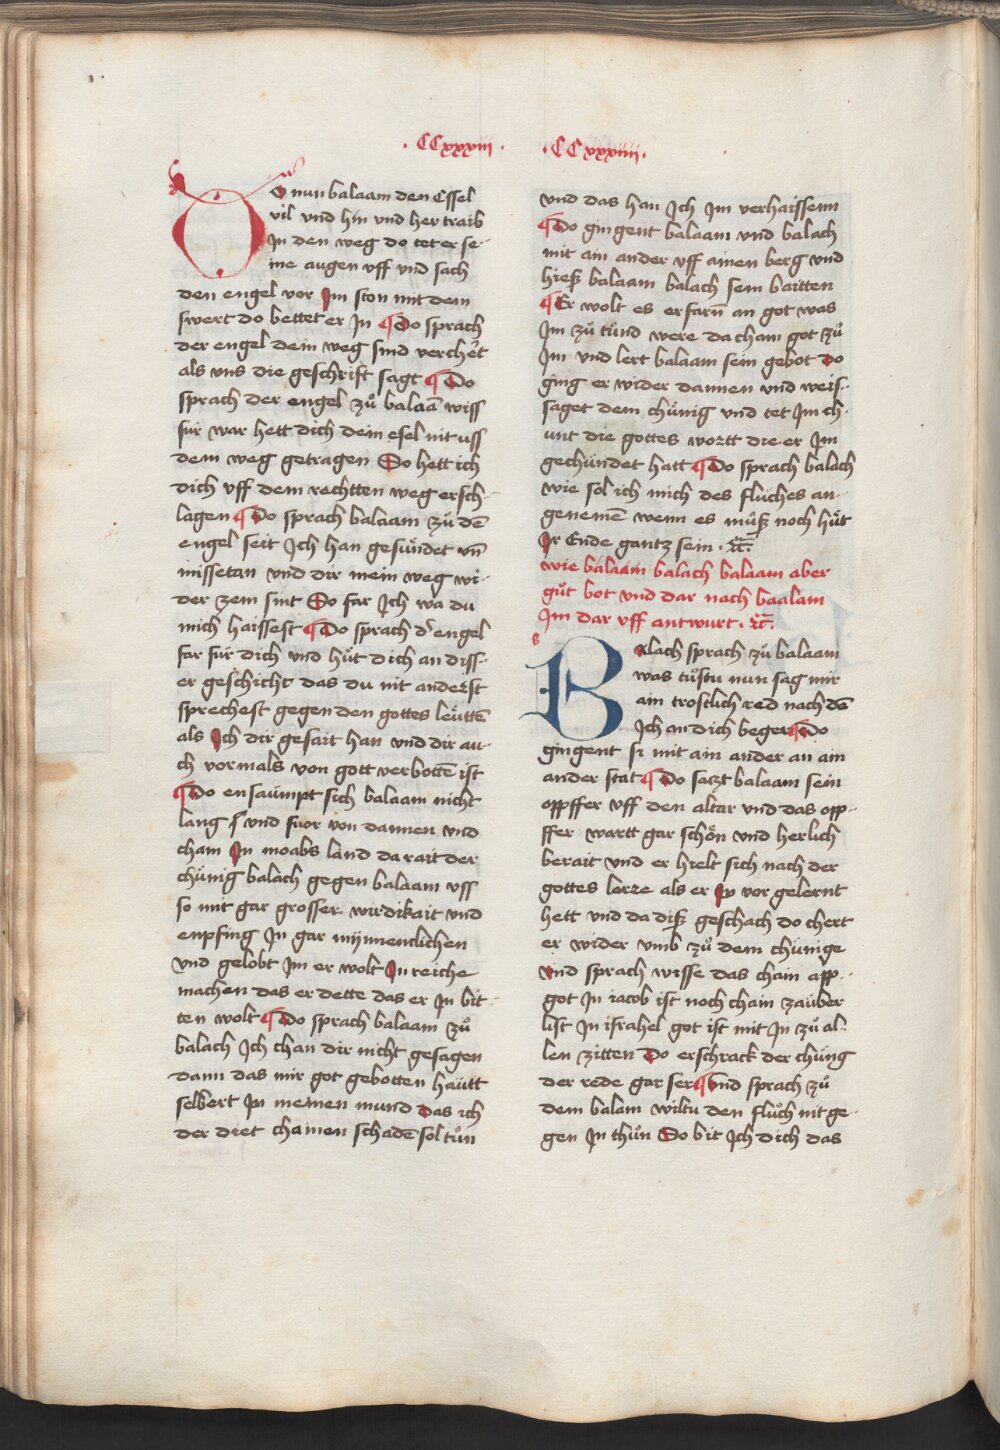 · CCxxxiii ·
Do nun balaam den Essel
vil vnd hin vnd her traib
In den weg do tet er se-
ine augen vff vnd sach
den engel vor Im ston mit dem
swert do bettet er In ¶ Do sprach
der engel dein weg sind verchert
als vns die geschrift sagt ¶ Do
sprach der engel zů balaā wiss
für war hett dich dein esel nit uss
dem weg getragen So hett ich
dich vff dem rechtten weg ersch-
lagen ¶ Do sprach balaam zů dē
engel seit Ich han gesündet vn̄
missetan vnd dir mein weg wi-
der zem sint So far Ich wa du
mich haissest ¶ Do sprach dˢ engel
far für dich vnd hůt dich an diss-
er geschicht das du nit anderst
sprechest gegen den gottes leüttē
als Ich dir gesait han vnd dir au-
ch vormals von gott verbottē ist
¶ Do ensaümpt sich balaam nicht
lang vnd fuor von dannen vnd
cham In moabs land da rait der
chünig balach gegen balaam vss
so mit gar grosser wirdikait vnd
enpfing In gar mynnenclichen
vnd gelobt Im er wolt In reiche
machen das er dette das er In bit-
ten wolt ¶ Do sprach balaam zů
balach Ich chan dir nicht gesagen
dann das mir got gebotten haütt
selbert In meinen mund das ich
der diet chainen schadē sol tůn
· CCxxxiiii ·
vnd das han Ich Im verhaissenn
¶ Do gingent balaam vnd balach
mit ain ander vff ainen berg vnd
hieß balaam balach sein baitten
¶ Er wolt es erfarn an got was
Im zů tůnd were da cham got zů
Im vnd lert balaam sein gebot do
ging er wider dannen vnd weis-
saget dem chünig vnd tet Im ch-
unt die gottes wortt die er Im
gechündet hatt ¶ Do sprach balach
wie sol ich mich des flüches an-
genemē wenn es můß noch hüt
Ir Ende gantz sein · ꝛc̄.
wie balaam balach balaam aber
gůt bot vnd dar nach baalam
Im dar vff antwurt · ꝛc̄.
Balach sprach zů balaam
was tůstu nun sag mir
ain trostlich red nach dē
Ich an dich beger ¶ Do
gingent si mit ain ander an ain
ander stat ¶ Do satzt balaam sein
oppffer vff den altar vnd das opp-
ffer wartt gar schön vnd herlich
berait vnd er hielt sich nach der
gottes lerre als er In vor gelernt
hett vnd da diß geschach do chert
er wider vmb zů dem chünige
vnd sprach wisse das chain app-
got In iacob ist noch chain zauber
list In israhel got ist mit In zů al-
len zitten Do erschrack der chüng
der rede gar ser ¶ Vnd sprach zů
dem balam wiltu den flůch nit ge-
gen In thůn So bit Ich dich das